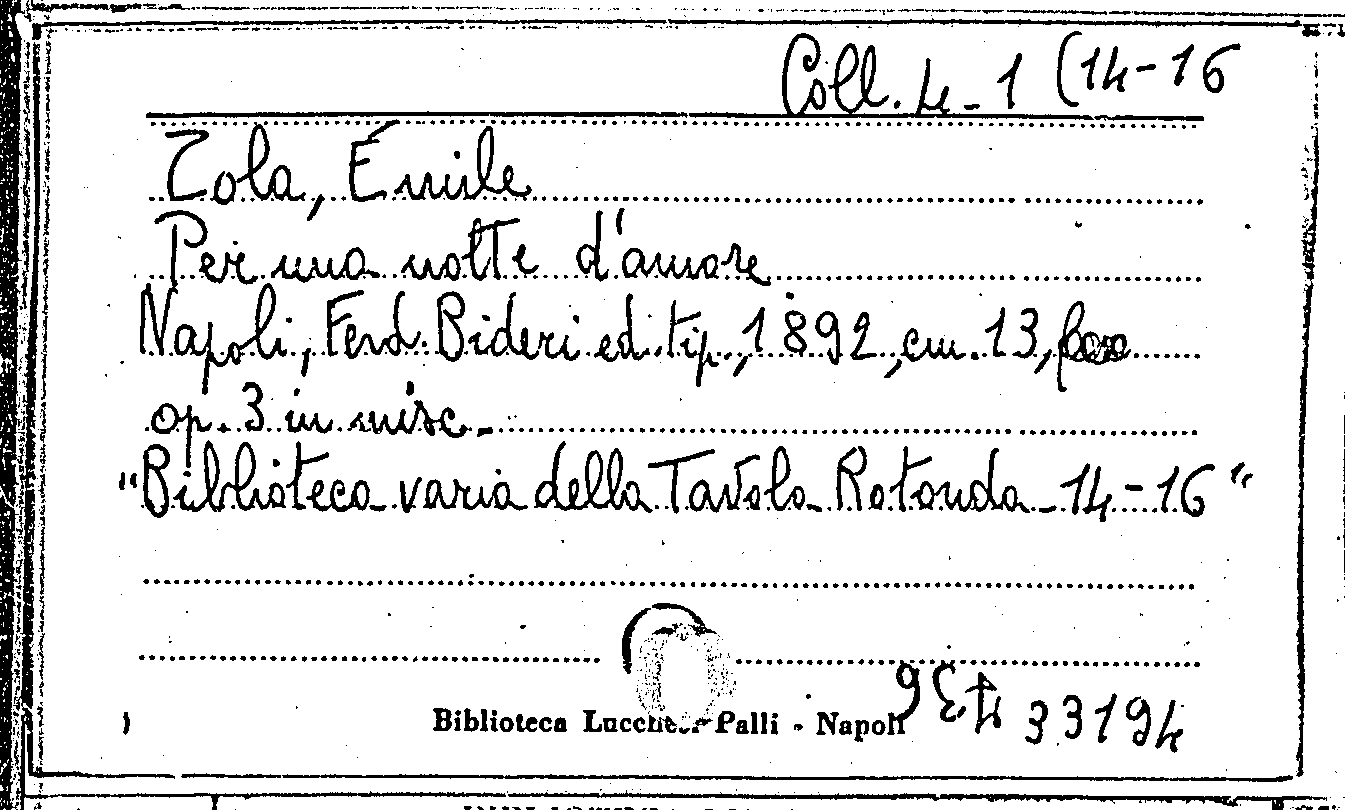 Coll. 4 - 1 (14-16
Zola, Émile
Per una notte d'amore
Napoli, Ferd. Bideri ed. tip., 1892, cm. 13,
op. 3 in misc.
"Biblioteca varia della Tavola Rotonda - 14-16"
Biblioteca Lucchesi Palli - Napoli
33194